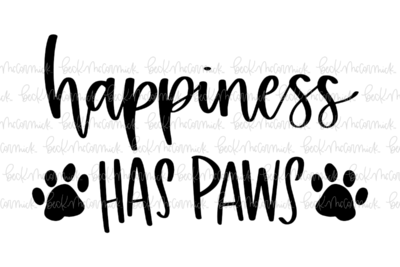 happiness
HAS PAWS